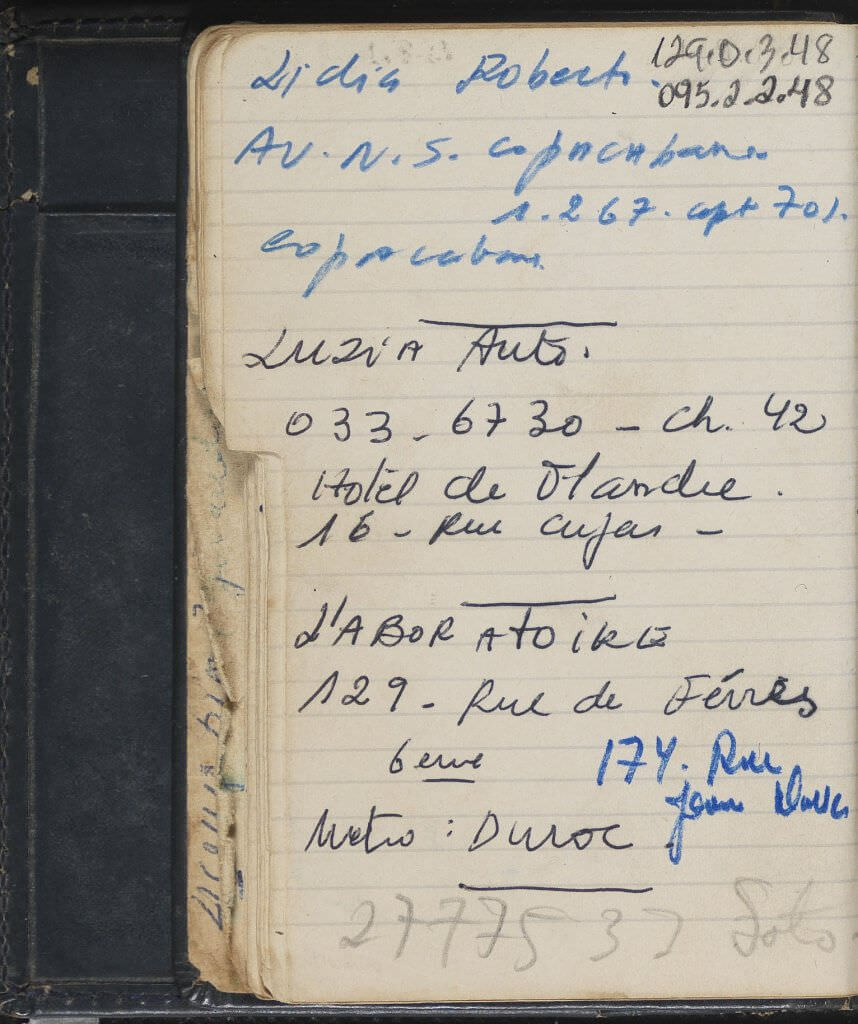 Lidia Roberti
129.0.3.48
095.2.2.48
AV. N. S. copACAbana
1.267. apt 701.
copacabana
LUZIA Auto.
033-6730 - Ch. 42
Hotel de Flandre.
16 - Rue Cujas -
L'ABORATOIRE
129 - Rue de
6eme
174. Rue
Jean
Metro : Duroc
27775 37 Foto